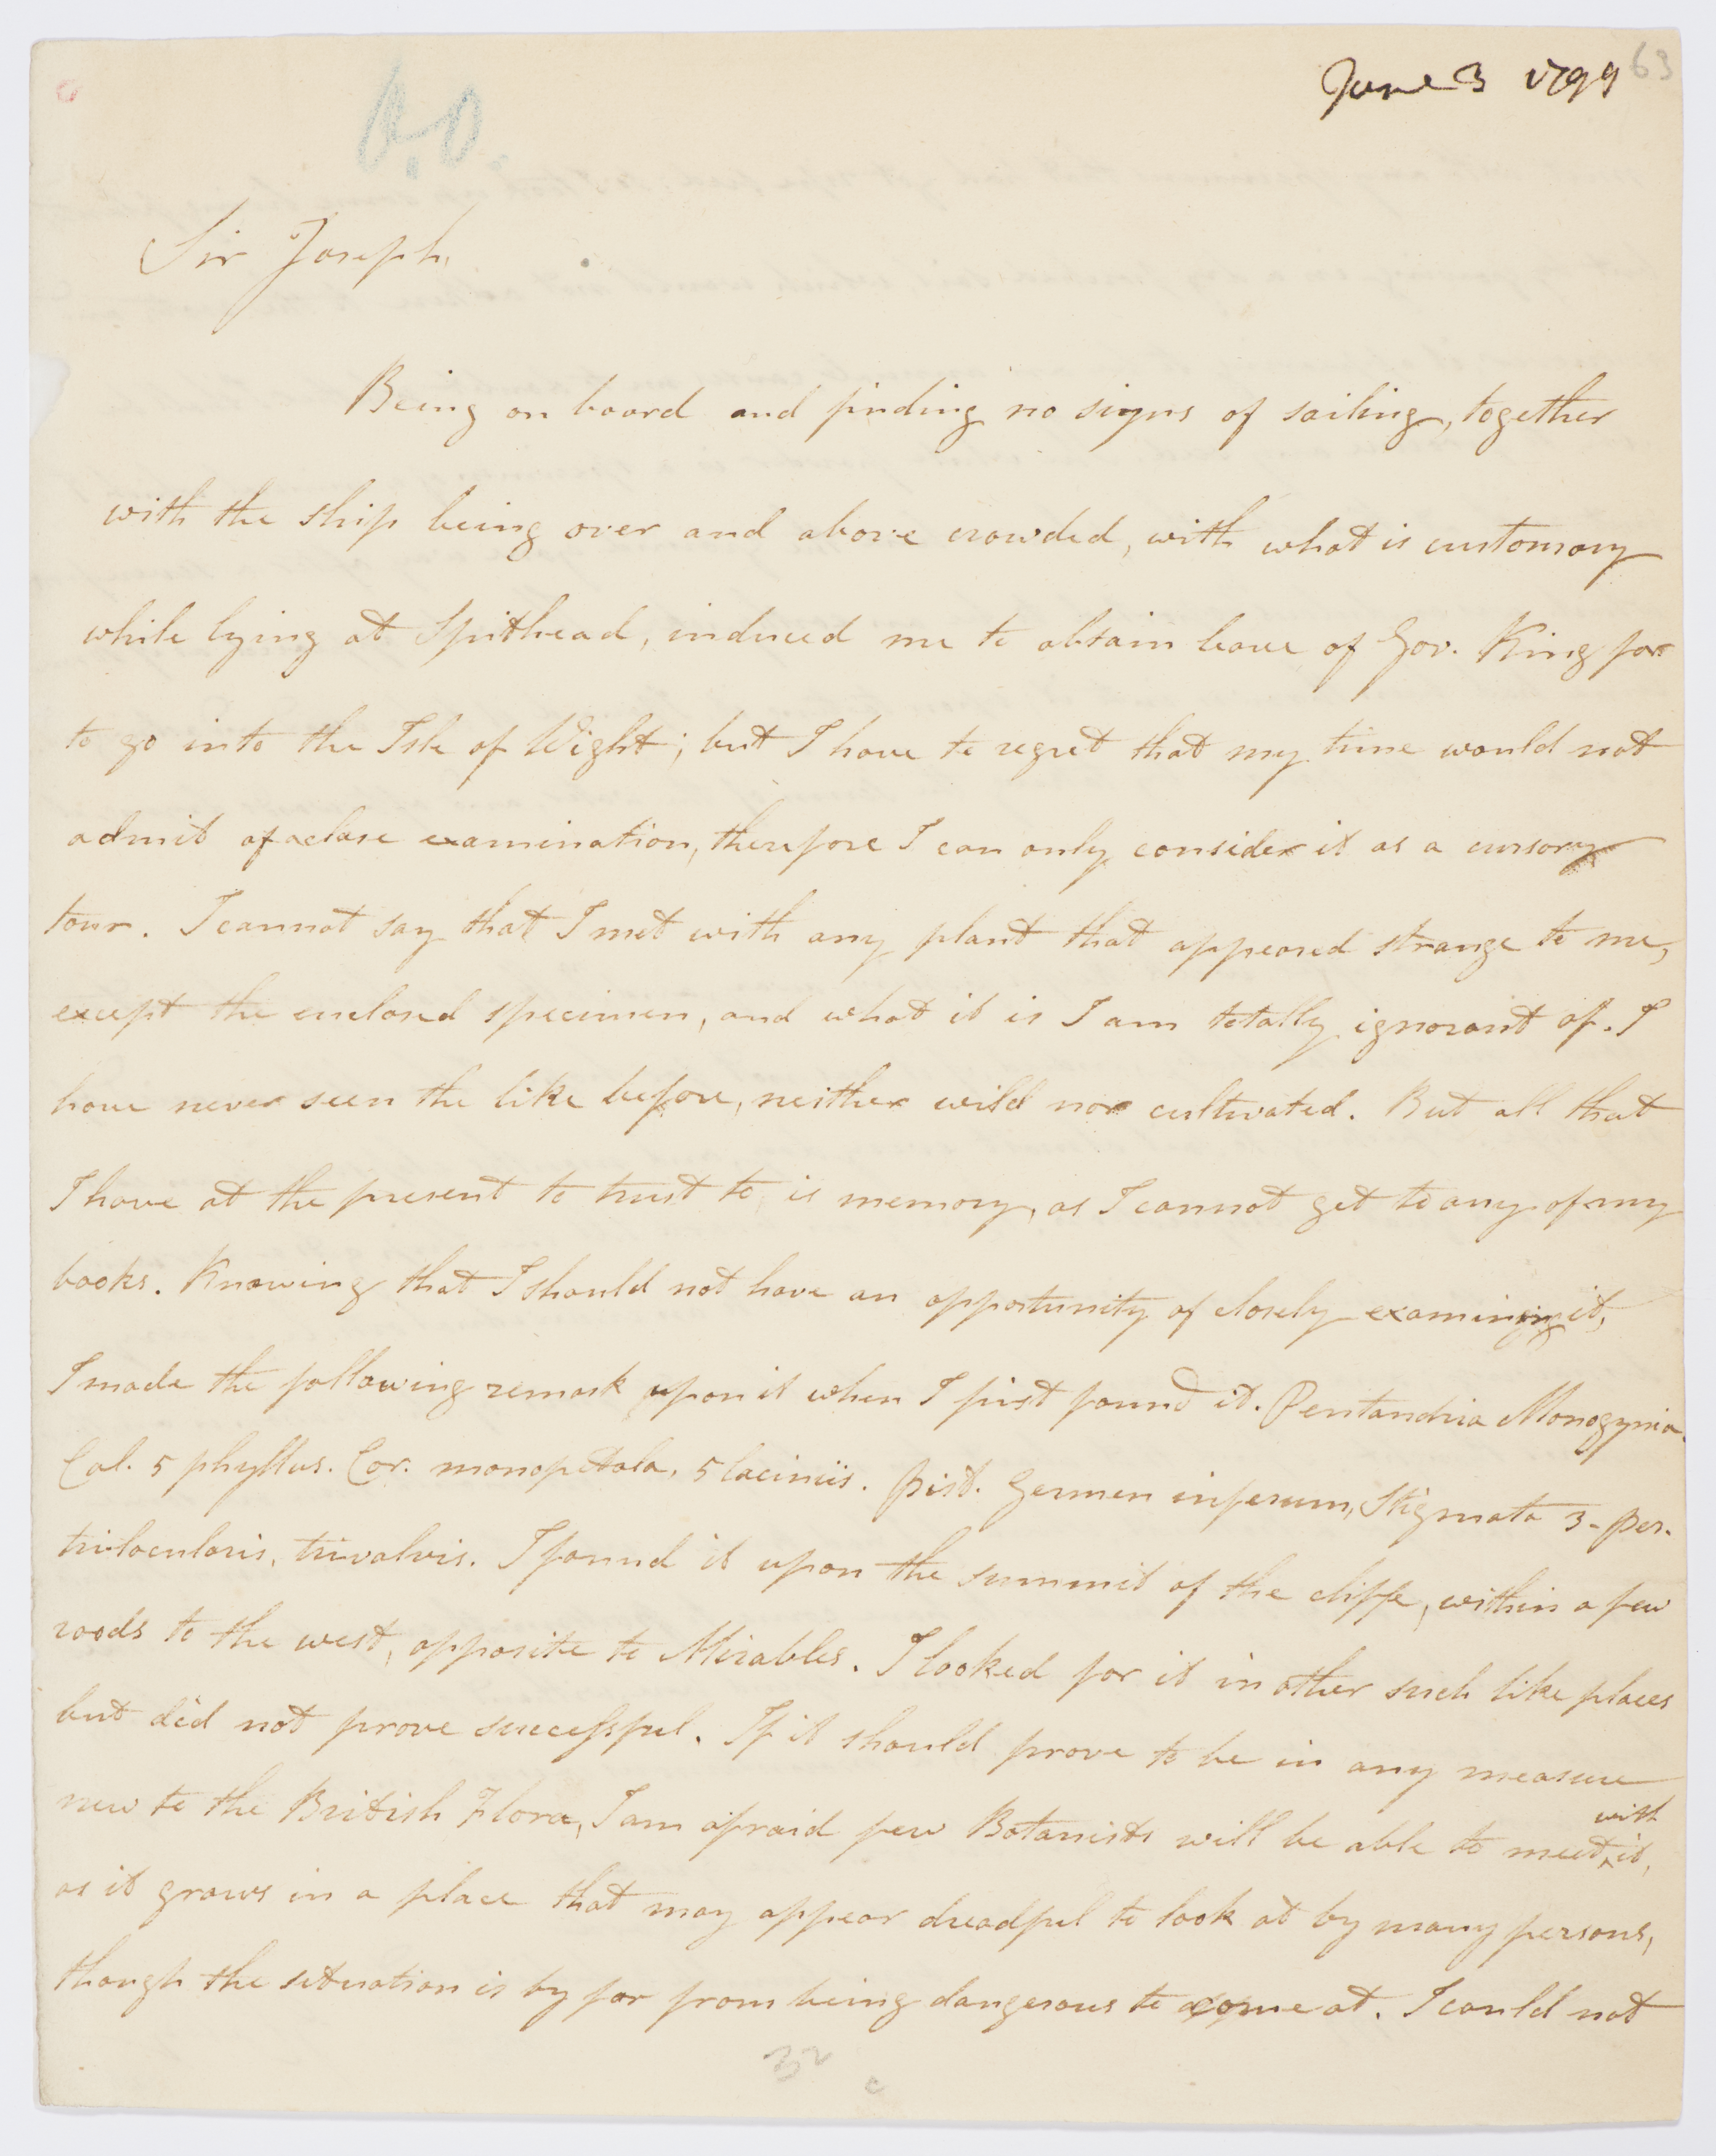 June 3 1799
63
A.O.
Sir Joseph,
Being on board and finding no signs of sailing, together
with the ship being over and above crowded, with what is customary
while lying at Spithead, induced me to obtain leave of Gov. King for
to go into the Isle of Wight; but I have to regret that my time would not
admit of a close examination, therefore I can only consider it as a cursory
tour. I cannot say that I met with any plant that appeared strange to me,
except the enclosed specimen, and what it is I am totally ignorant of. I
have never seen the like before, neither wild nor cultivated. But all that
I have at the present to trust to is memory, as I cannot get to any of my
books. Knowing that I should not have an opportunity of closely examining it,
I made the following remark upon it when I first found it. Pentandria Monogynia.
Cal. 5 phyllus. Cor. monopetala, 5 laciniis. Pist. Germen inferum, Stigmata 3 - Per.
trilocularis, trivalvis. I found it upon the summit of the cliffe, within a few
roods to the west, opposite to Mirables. I looked for it in other such like places
but did not prove successful. If it should prove to be in any measure
new to the British Flora, I am afraid few Botanists will be able to meet with it,
as it grows in a place that may appear dreadful to look at by many persons,
though the situation is by far from being dangerous to come at. I could not
32
c